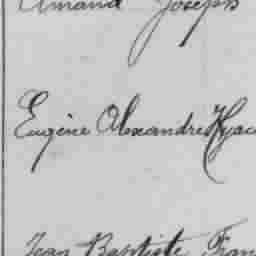 Amand Joseph
Eugène Alexandre Hyac
Jean Baptiste Fran